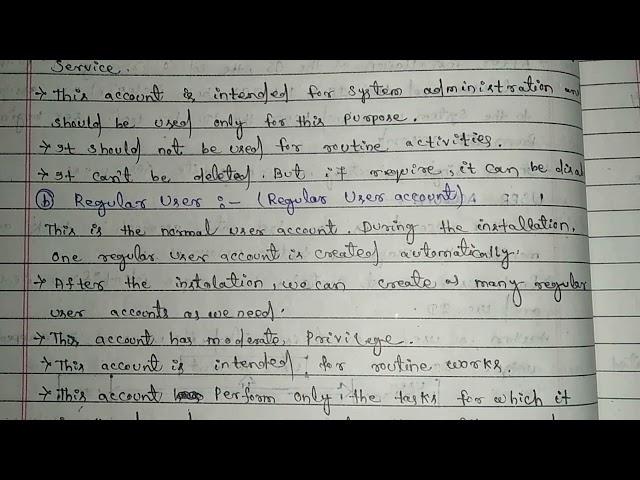 Service.
→ This account is intended for system administration an
should be used only for this purpose.
→ It should not be used for routine activities.
→ It can't be deleted. But if require, it can be disa
(b) Regular User :- (Regular User account)
This is the normal user account. During the installation,
one regular user account is created automatically.
→ After the instalation, we can create as many regular
user accounts as we need.
→ This account has moderate Privilege.
→ This account is intended for routine works.
→ This account Perform only the tasks for which it